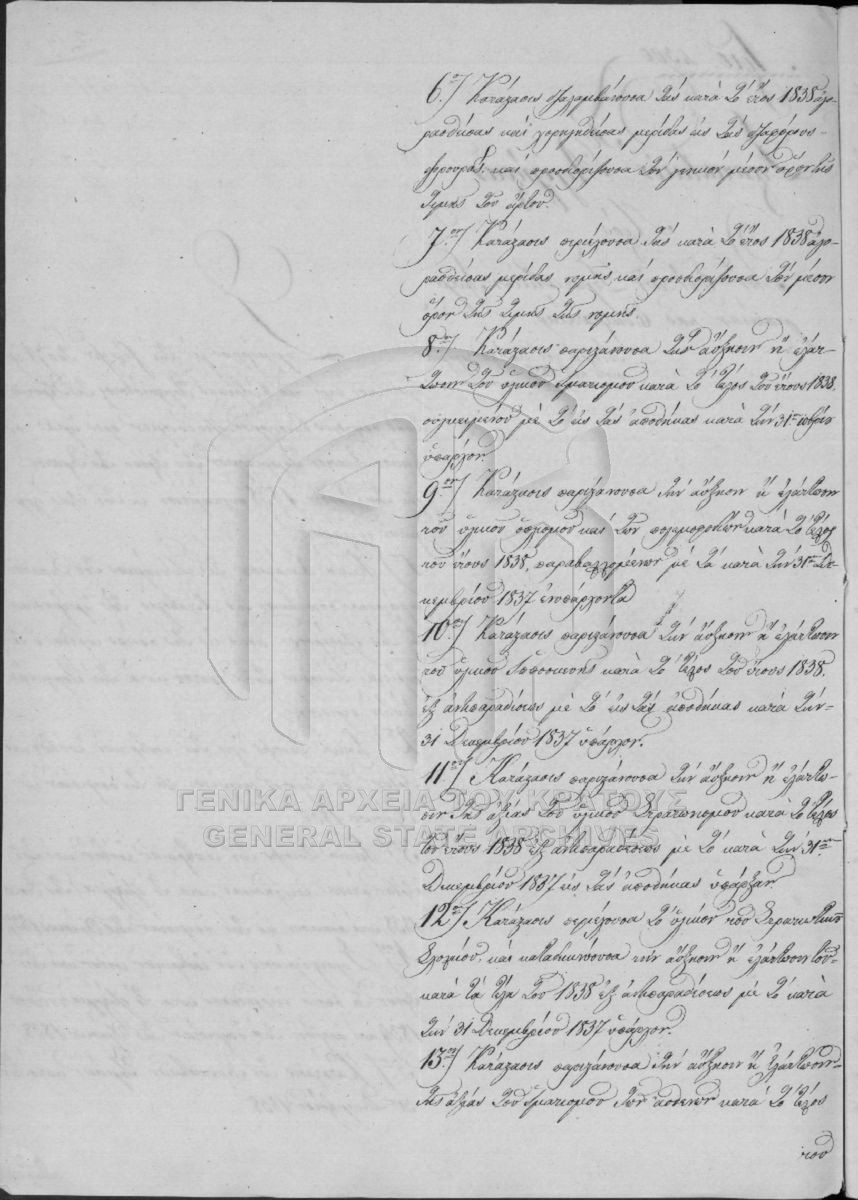 6.ον) Κατάστασις διαλαμβάνουσα τὰς κατὰ τὸ ἔτος 1838 ἀγο-
ρασθείσας καὶ χορηγηθείσας μερίδας εἰς τὰς διαφόρους
φρουράς, καὶ προσδιορίζουσα τὸν γενικὸν μέσον ὅρον τῆς
τιμῆς τοῦ ἄρτου.
7.ον) Κατάστασις περιέχουσα τὰς κατὰ τὸ ἔτος 1838 ἀγο-
ρασθείσας μερίδας νομῆς, καὶ προσδιορίζουσα τὸν μέσον
ὅρον τῆς τιμῆς τῆς νομῆς.
8.ον) Κατάστασις παριστάνουσα τὴν αὔξησιν ἢ ἐλάτ-
τωσιν τοῦ ὑλικοῦ ἱματισμοῦ κατὰ τὸ τέλος τοῦ ἔτους 1838.
συγκειμένου μὲ τὸ εἰς τὰς ἀποθήκας κατὰ τὴν 31ην
ὑπάρχον.
9.ον) Κατάστασις παριστάνουσα τὴν αὔξησιν ἢ ἐλάττωσιν
τοῦ ὑλικοῦ ὁπλισμοῦ καὶ τῶν πολεμοφοδίων κατὰ τὸ τέλος
τοῦ ἔτους 1838, παραβαλλομένων μὲ τὰ κατὰ τὴν 31ην Δε-
κεμβρίου 1837 ἐνυπάρχοντα
10.ον) Κατάστασις παριστάνουσα τὴν αὔξησιν ἢ ἐλάττωσιν
τοῦ ὑλικοῦ ἱπποσκευῆς κατὰ τὸ τέλος τοῦ ἔτους 1838.
ἐξ ἀντιπαραθέσεως μὲ τὸ εἰς τὰς ἀποθήκας κατὰ τὴν
31 Δεκεμβρίου 1837 ὑπάρχον.
11.ον) Κατάστασις παριστάνουσα τὴν αὔξησιν ἢ ἐλάττω-
σιν τῆς ἀξίας τοῦ ὑλικοῦ Στρατωνισμοῦ κατὰ τὸ τέλος
τοῦ ἔτους 1838 ἐξ ἀντιπαραθέσεως μὲ τὸ κατὰ τὴν 31ην
Δεκεμβρίου 1837 εἰς τὰς ἀποθήκας ὑπάρξαν.
12.ον) Κατάστασις περιέχουσα τὸ ὑλικὸν τοῦ Στρατιωτικοῦ
Σχολείου, καὶ καταδεικνύουσα τὴν αὔξησιν ἢ ἐλάττωσίν του
κατὰ τὰ τέλη τοῦ 1838 ἐξ ἀντιπαραθέσεως μὲ τὸ κατὰ
τὴν 31 Δεκεμβρίου 1837 ὑπάρχον.
13.ον) Κατάστασις παριστάνουσα τὴν αὔξησιν ἢ ἐλάττωσιν
τῆς ἀξίας τοῦ ἱματισμοῦ τῶν ἀσθενῶν κατὰ τὸ τέλος
τοῦ
ΓΕΝΙΚΑ ΑΡΧΕΙΑ ΤΟΥ ΚΡΑΤΟΥΣ
GENERAL STATE ARCHIVES